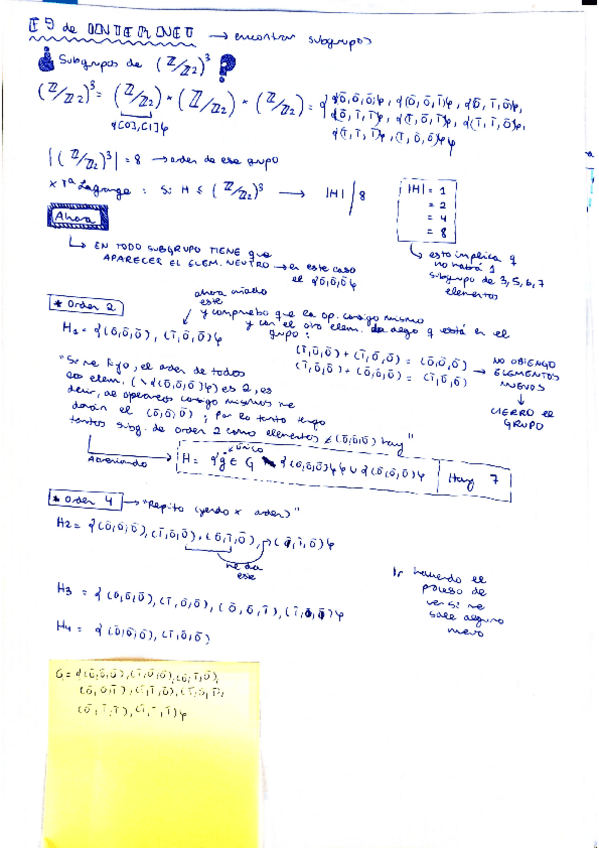 EJ de INTERNET → encontrar subgrupos
¿Subgrupos de (Z/Z2)^3?
(Z/Z2)^3 = (Z/Z2) × (Z/Z2) × (Z/Z2) = {(0̄,0̄,0̄), (0̄,0̄,1̄), (0̄,1̄,0̄),
(0̄,1̄,1̄), (1̄,0̄,1̄), (1̄,1̄,0̄),
(1̄,1̄,1̄), (1̄,0̄,0̄)}
{[0],[1]}
|(Z/Z2)^3| = 8 → orden de ese grupo
x Tª Lagrange : Si H ≤ (Z/Z2)^3 → |H| | 8
|H| = 1
= 2
= 4
= 8
esto implica q
no habrá 1
subgrupo de 3, 5, 6, 7
elementos
Ahora
EN TODO SUBGRUPO TIENE que
APARECER EL ELEM. NEUTRO → en este caso
el {(0̄,0̄,0̄)}
* Orden 2
ahora añado
este
y compruebo que la op. consigo mismo
y con el otro elem. da algo q está en el
grupo:
H1 = {(0̄,0̄,0̄), (1̄,0̄,0̄)}
(1̄,0̄,0̄) + (1̄,0̄,0̄) = (0̄,0̄,0̄)
(1̄,0̄,0̄) + (0̄,0̄,0̄) = (1̄,0̄,0̄)
NO OBTENGO
ELEMENTOS
NUEVOS
CIERRO el
GRUPO
"Si me fijo, el orden de todos
los elem. (\{(0̄,0̄,0̄)}) es 2, es
decir, al operarlos consigo mismos me
darán el (0̄,0̄,0̄); por lo tanto tengo
tantos subg. de orden 2 como elementos ≠ (0̄,0̄,0̄) hay"
único
H = {g ∈ G \ {(0̄,0̄,0̄)}} ∪ {(0̄,0̄,0̄)}
Hay 7
* Orden 4 → "Repito (yendo x orden)"
H2 = {(0̄,0̄,0̄), (1̄,0̄,0̄), (0̄,1̄,0̄), (1̄,1̄,0̄)}
me da
ese
H3 = {(0̄,0̄,0̄), (1̄,0̄,0̄), (0̄,0̄,1̄), (1̄,0̄,1̄)}
H4 = {(0̄,0̄,0̄), (1̄,0̄,0̄)
Ir haciendo el
proceso de
ver si me
sale alguno
nuevo
G = {(0̄,0̄,0̄), (1̄,0̄,0̄), (0̄,1̄,0̄),
(0̄,0̄,1̄), (1̄,1̄,0̄), (1̄,0̄,1̄),
(0̄,1̄,1̄), (1̄,1̄,1̄)}